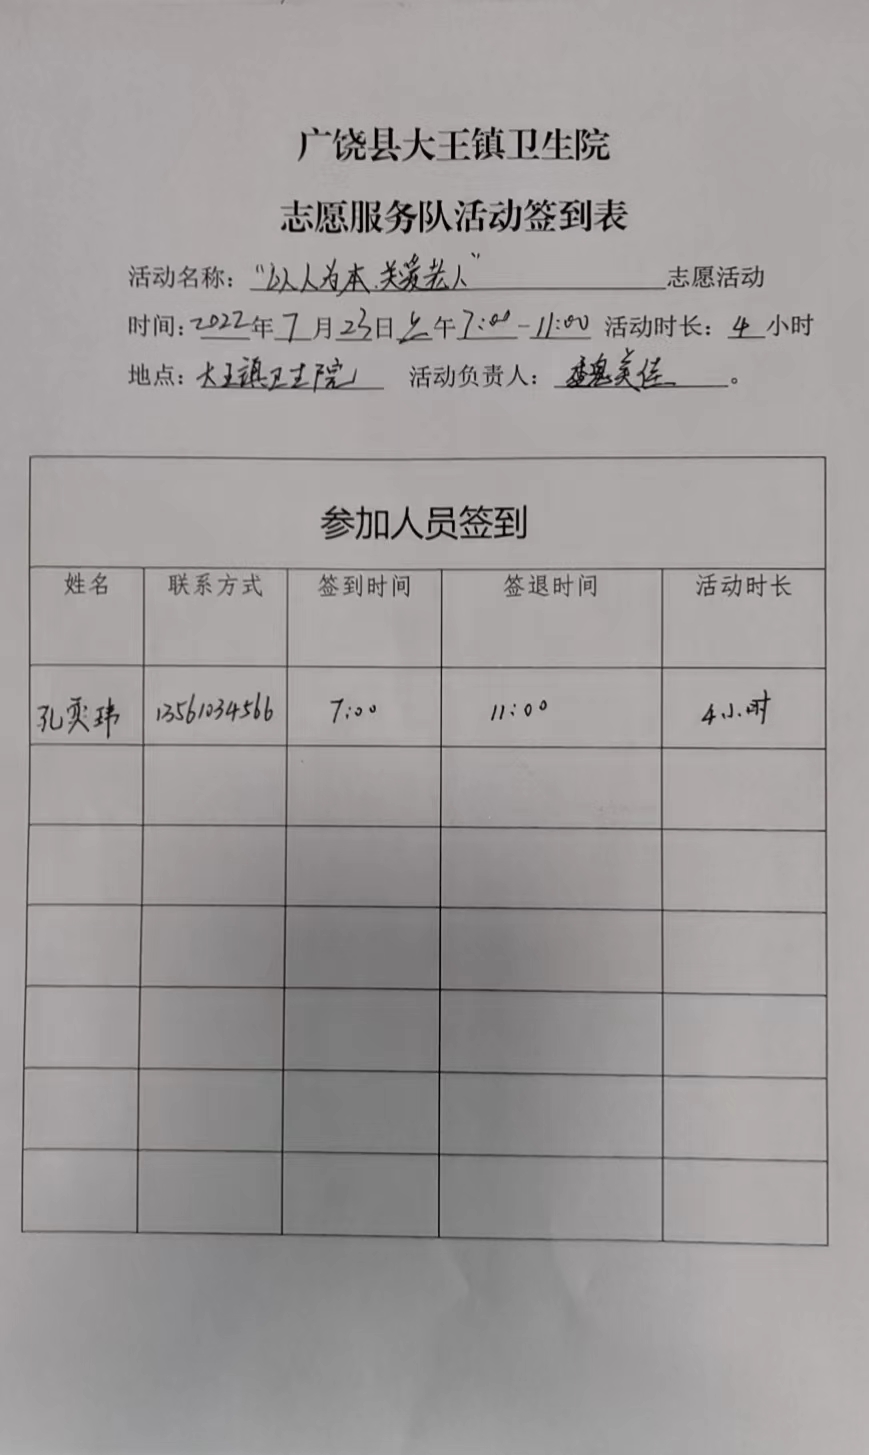 广饶县大王镇卫生院
志愿服务队活动签到表
活动名称：“以人为本.关爱老人”志愿活动
时间：2022年7月23日上午7:00-11:00 活动时长：4小时
地点：大王镇卫生院 活动负责人：魏美佳。
参加人员签到
姓名 联系方式 签到时间 签退时间 活动时长
孔奕玮 13561034566 7:00 11:00 4小时